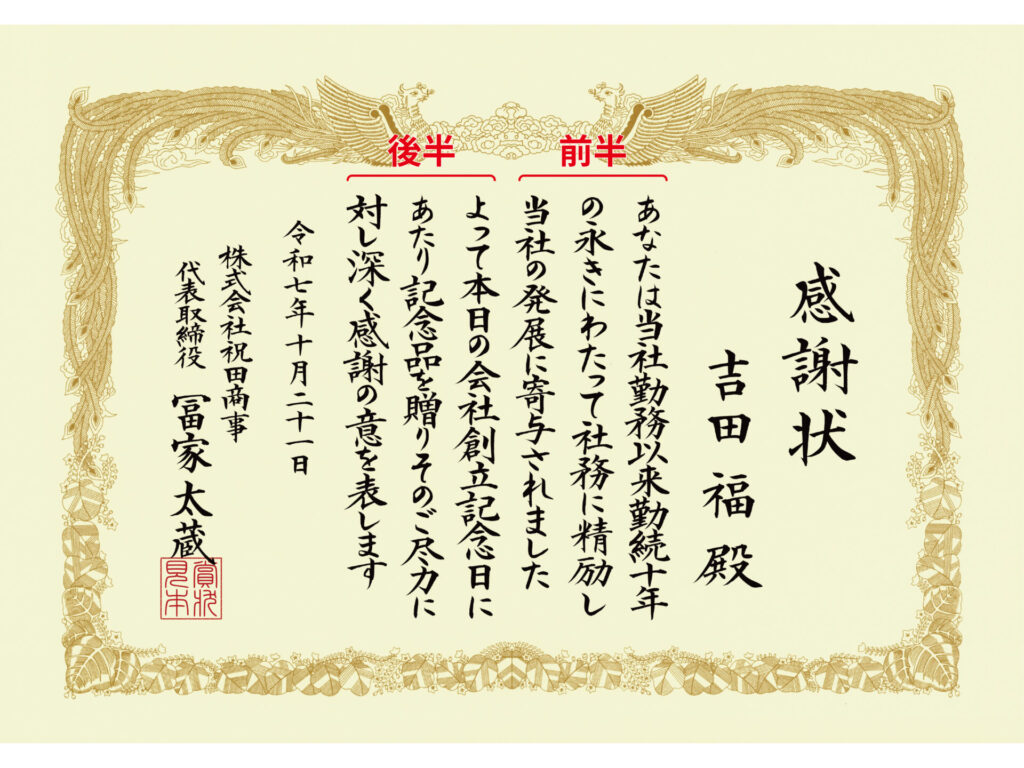 後半
前半
感謝状
吉田福殿
あなたは当社勤務以来勤続十年
の永きにわたって社務に精励し
当社の発展に寄与されました
よって本日の会社創立記念日に
あたり記念品を贈りそのご尽力に
対し深く感謝の意を表します
令和七年十月二十一日
株式会社祝田商事
代表取締役 冨家太蔵
賞状
見本